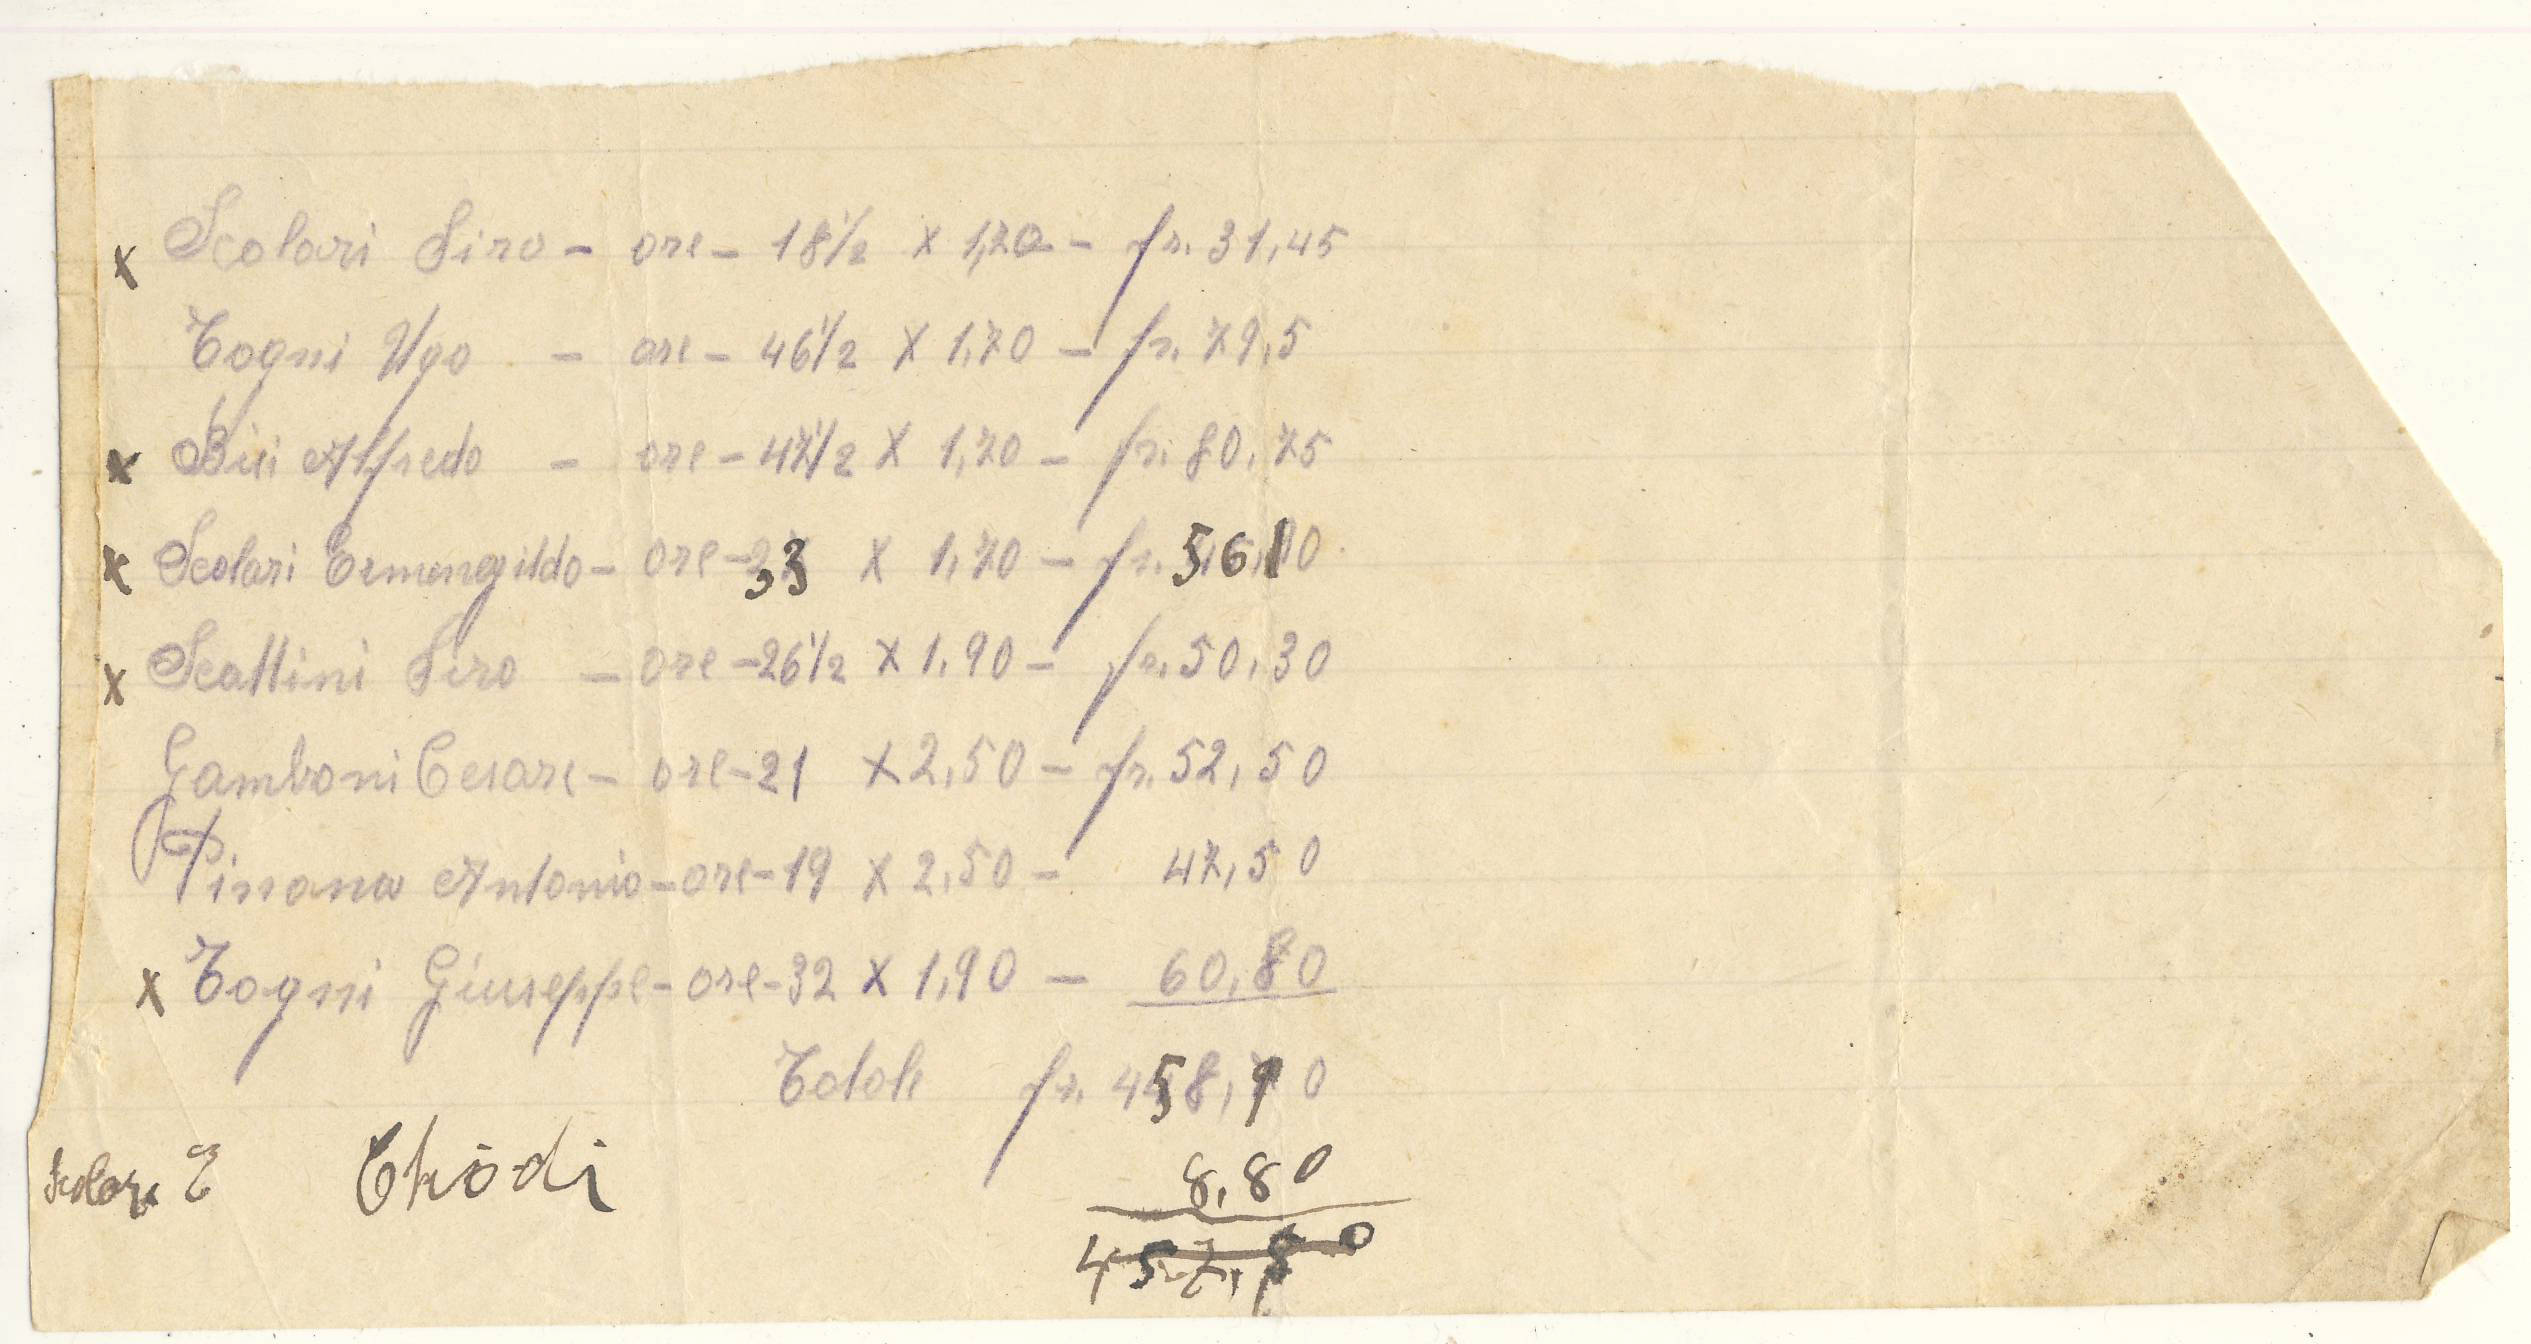 x Scolari Siro - ore - 18 1/2 x 1,70 - fr. 31,45
Togni Ugo - ore - 46 1/2 x 1,70 - fr. 79,5
x Bizi Alfredo - ore - 47 1/2 x 1,70 - fr. 80,75
x Scolari Ermenegildo - ore - 33 x 1,70 - fr. 56,10
x Scattini Siro - ore - 26 1/2 x 1,90 - fr. 50,30
Gamboni Cesare - ore - 21 x 2,50 - fr. 52,50
Pinana Antonio - ore - 19 x 2,50 - 47,50
x Togni Giuseppe - ore - 32 x 1,90 - 60,80
Totale fr. 458,90
Scolari E Chiodi 8,80
457,50